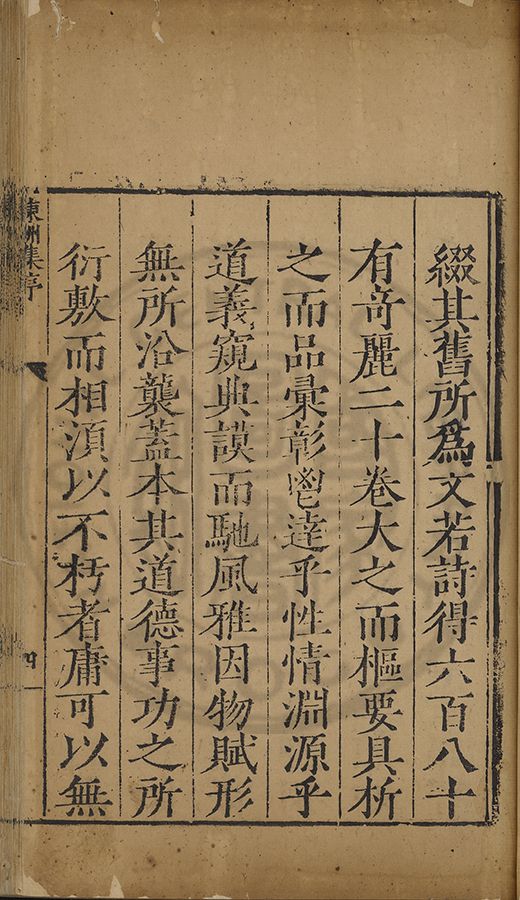 綴其舊所爲文若詩得六百八十
有竒麗二十卷大之而樞要具析
之而品彚彰鬯達乎性情淵源乎
道義窺典謨而馳風雅因物賦形
無所沿襲蓋本其道德事功之所
衍敷而相湏以不朽者庸可以無
東洲集序
四